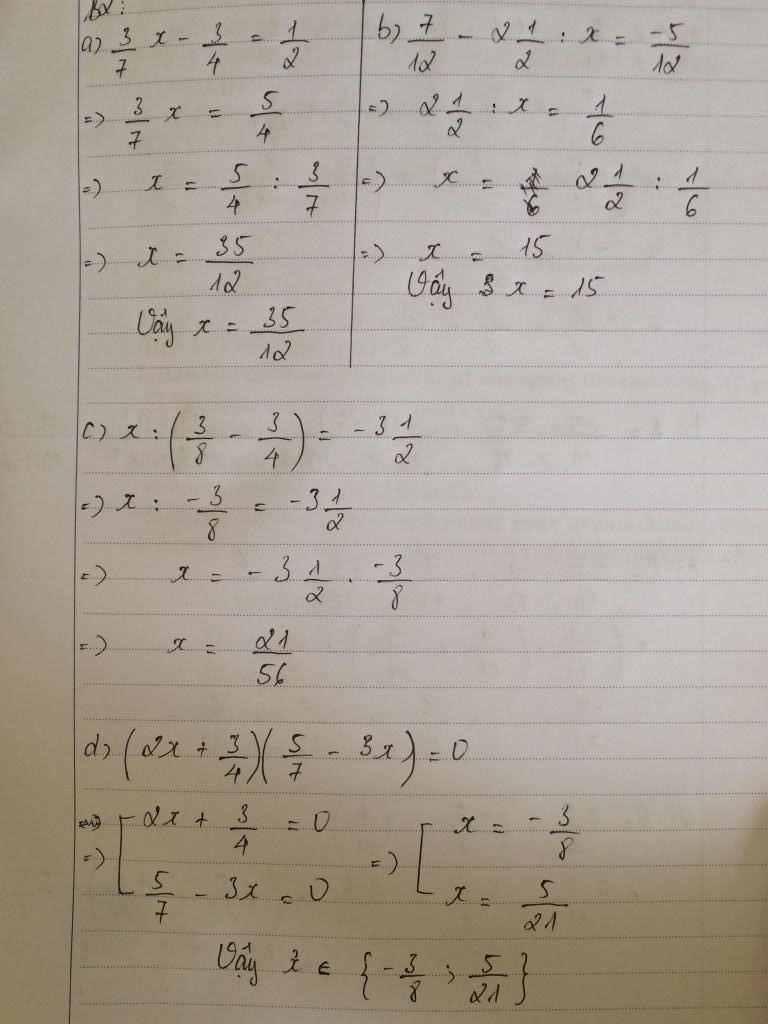 B2:
a) 3/7 x - 3/4 = 1/2
=) 3/7 x = 5/4
=) x = 5/4 : 3/7
=) x = 35/12
Vậy x = 35/12
b) 7/12 - 2 1/2 : x = -5/12
=) 2 1/2 : x = 1/6
=) x = 2 1/2 : 1/6
=) x = 15
Vậy x = 15
c) x : (3/8 - 3/4) = -3 1/2
=) x : -3/8 = -3 1/2
=) x = -3 1/2 . -3/8
=) x = 21/56
d) (2x + 3/4)(5/7 - 3x) = 0
=) [ 2x + 3/4 = 0 =) [ x = -3/8
5/7 - 3x = 0 x = 5/21
Vậy x ∈ {-3/8 ; 5/21}